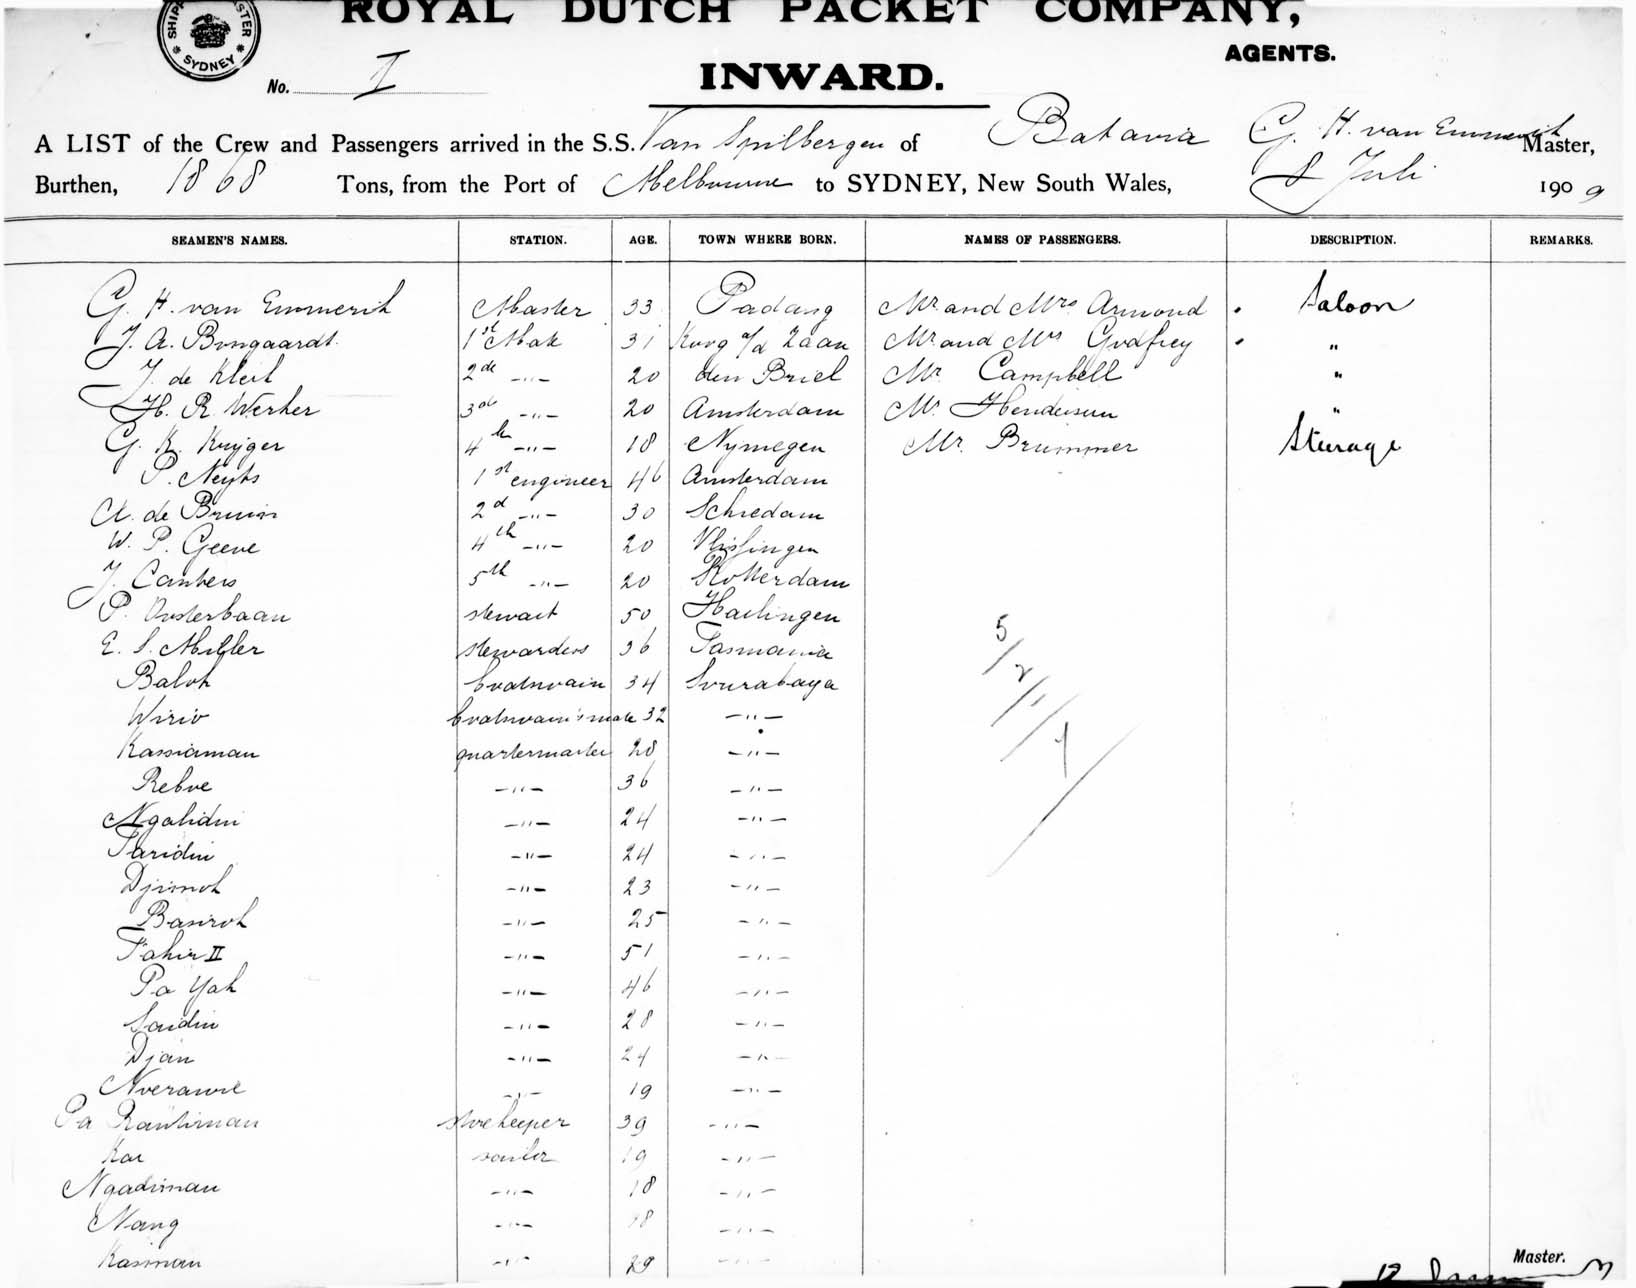 SHIPP STER
SYDNEY
ROYAL DUTCH PACKET COMPANY,
AGENTS.
No. I
INWARD.
A LIST of the Crew and Passengers arrived in the S.S. Van Spilbergen of Batavia G. H. van Emmerik Master,
Burthen, 1868 Tons, from the Port of Melbourne to SYDNEY, New South Wales, 8 Juli 1909
SEAMEN'S NAMES. STATION. AGE. TOWN WHERE BORN. NAMES OF PASSENGERS. DESCRIPTION. REMARKS.
G. H. van Emmerik Master 33 Padang Mr and Mrs Armond Saloon
J. A. Bongaardt. 1st Mate 31 Koog a/d Zaan Mr and Mrs Godfrey "
J. de Kleil 2de -"- 20 den Briel Mr Campbell "
H. R. Werker 3de -"- 20 Amsterdam Mr Henderson "
G. K. Kuyger 4th -"- 18 Nymegen Mr. Brummer Steerage
P. Neyts 1st engineer 46 Amsterdam
A. de Bruin 2d -"- 30 Schiedam
W. P. Geeve 4th -"- 20 Vlissingen
J. Cambers 5th -"- 20 Rotterdam
P. Oosterbaan stewart 50 Harlingen
E. S. Miller stewardess 36 Tasmania
Baloh boatswain 34 Sourabaya
Wirio boatswain's mate 32 -"-
Kassiaman quartermaster 28 -"-
Reboe -"- 36 -"-
Ngalidin -"- 24 -"-
Taridin -"- 24 -"-
Djimoh -"- 23 -"-
Basiroh -"- 25 -"-
Tahir II -"- 51 -"-
Pa Yah -"- 46 -"-
Saidin -"- 28 -"-
Djan -"- 24 -"-
Noerawie -"- 19 -"-
Pa Rantiman storekeeper 39 -"-
Kar sailor 19 -"-
Ngadiman -"- 18 -"-
Nang -"- 18 -"-
Kasiman -"- 29 -"-
5/2/1/1/
Master.